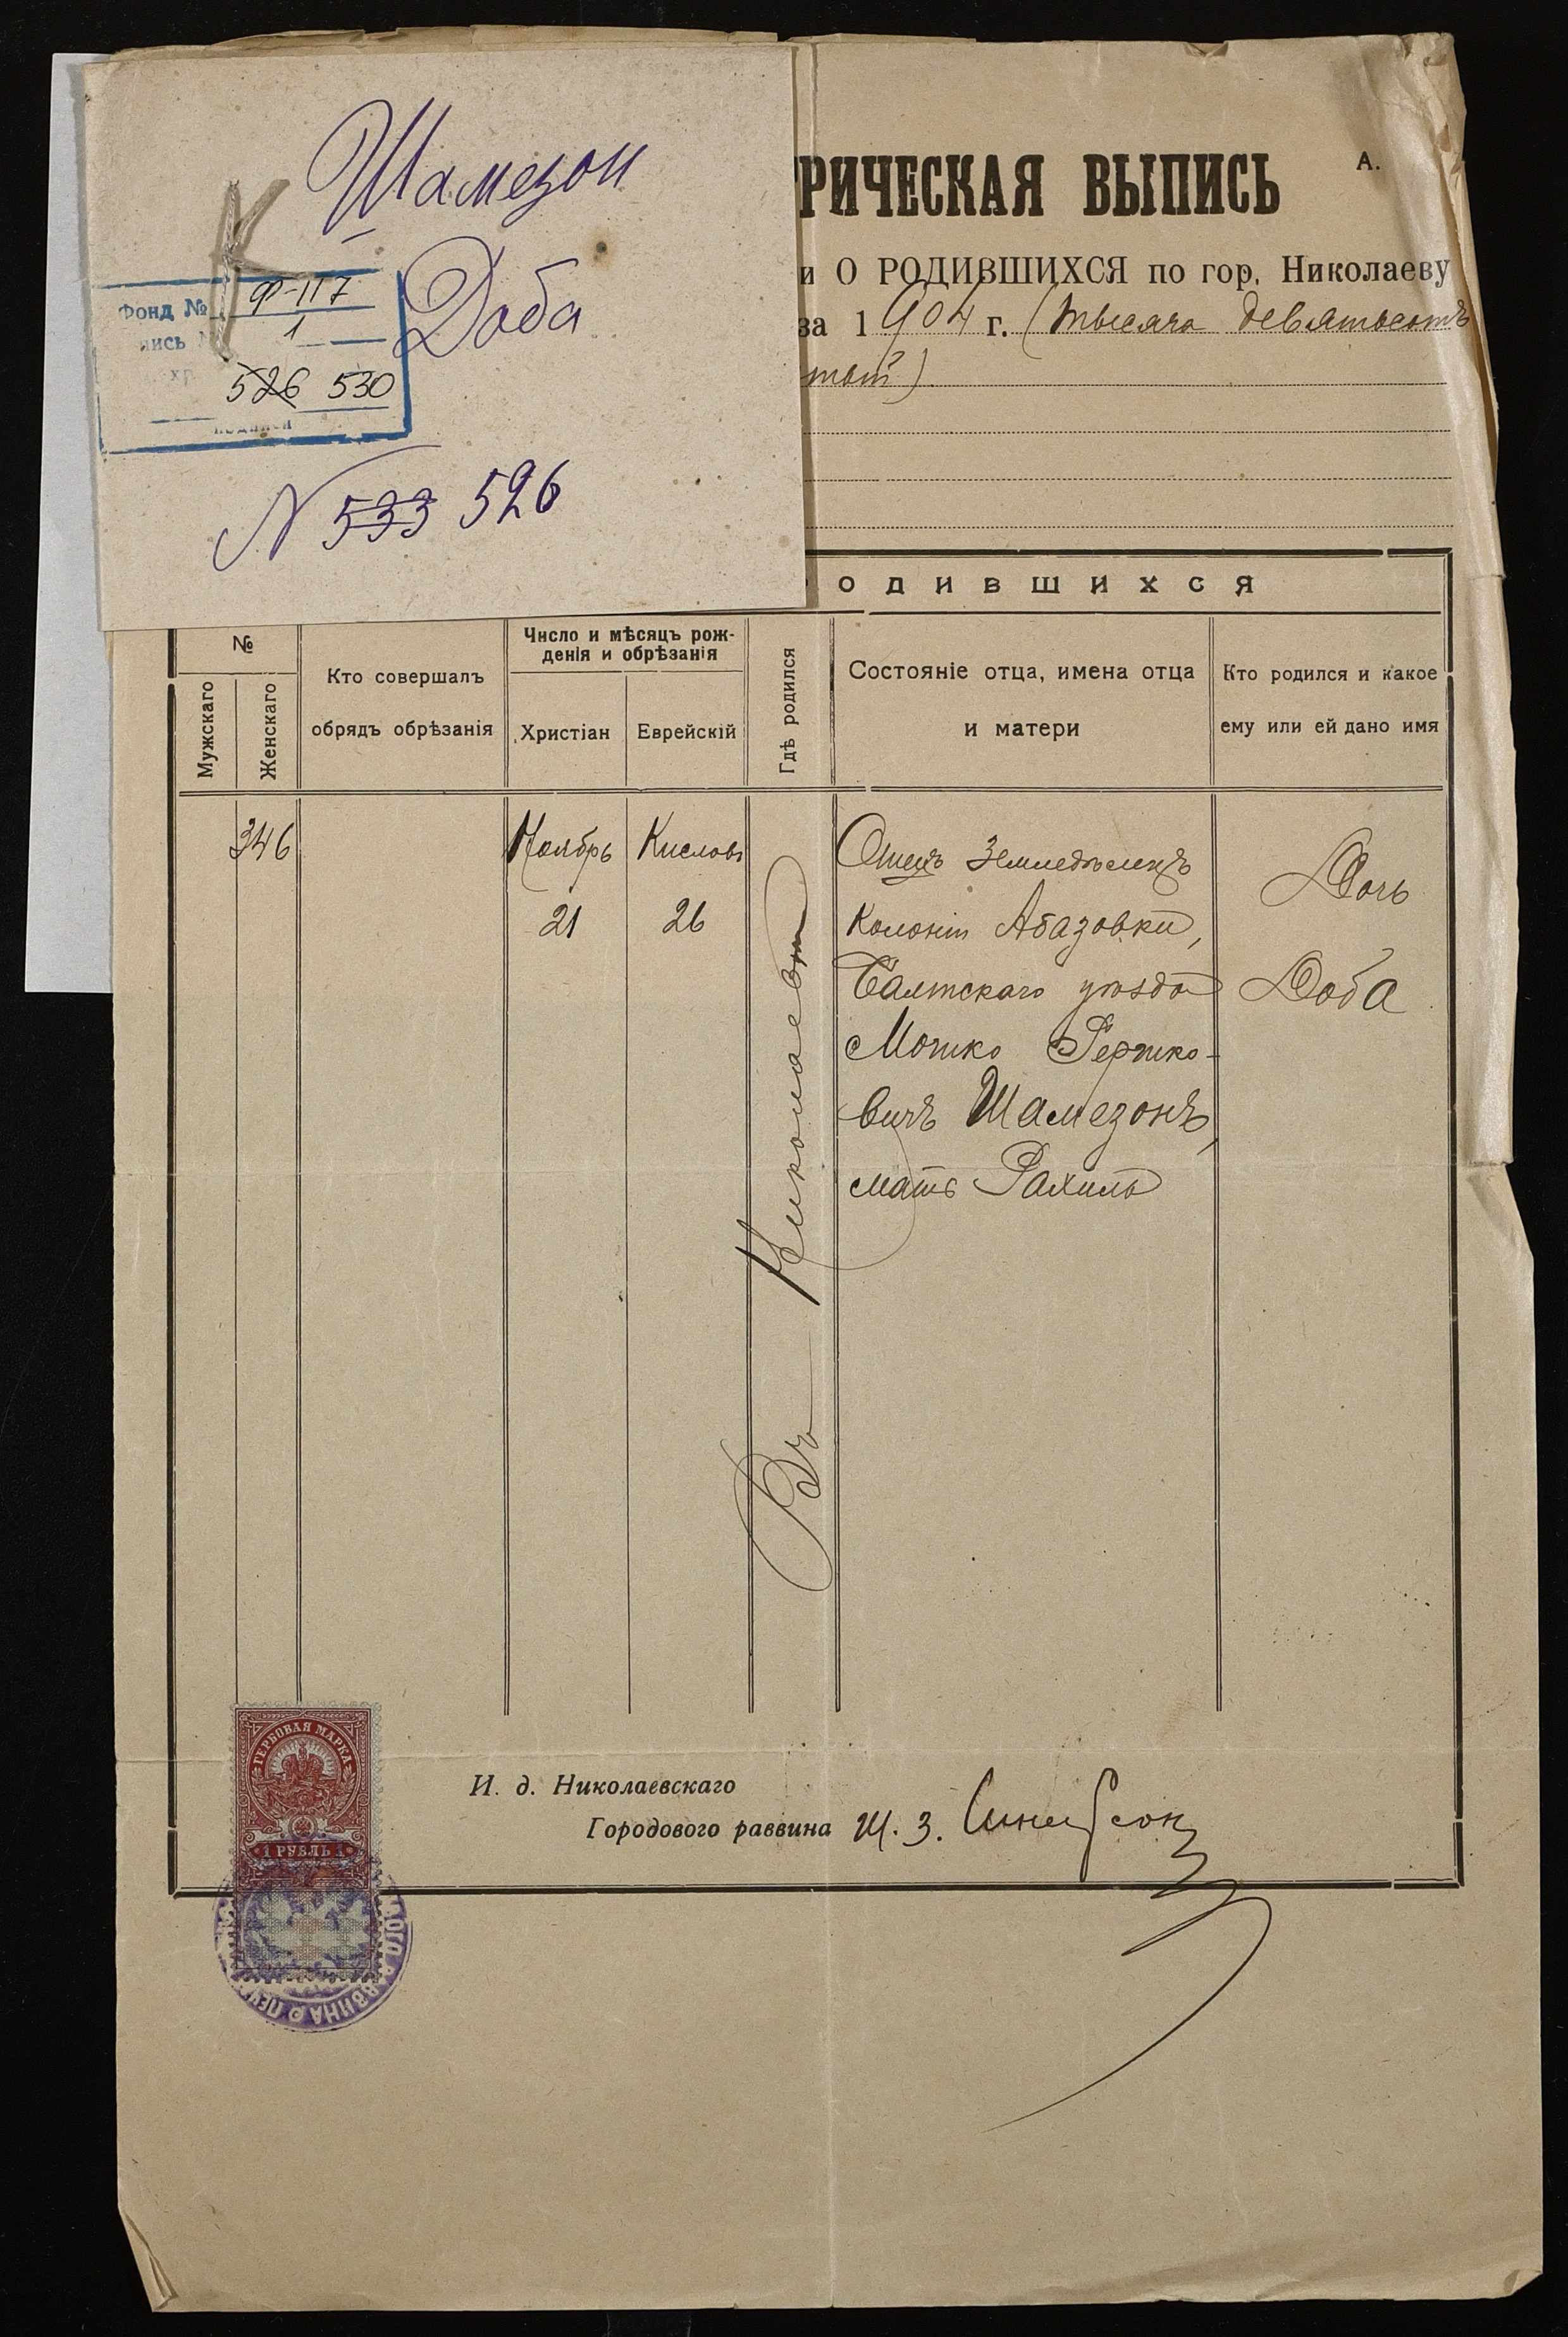 Шамезон
Доба
Фонд № Ф-117
пись № 1
хр.
526 530
N 533 526
РИЧЕСКАЯ ВЫПИСЬ
А.
и О РОДИВШИХСЯ по гор. Николаеву
за 1904 г. (тысяча девятьсотъ
тый)
ОДИВШИХСЯ
№
Мужскаго
Женскаго
Кто совершалъ
обрядъ обрѣзанія
Число и мѣсяцъ рож-
денія и обрѣзанія
Христіан
Еврейскій
Гдѣ родился
Состояніе отца, имена отца
и матери
Кто родился и какое
ему или ей дано имя
346
Ноябрь
21
Кислевъ
26
Въ Николаевѣ
Отецъ Земледѣлецъ
колоніи Абазовки,
Балтскаго уѣзда
Мошко Гершко-
вичъ Шамезонъ,
мать Рахиль
Дочь
Доба
ГЕРБОВАЯ МАРКА
1 РУБЛЬ 1
И. д. Николаевскаго
Городового раввина Ш. З.